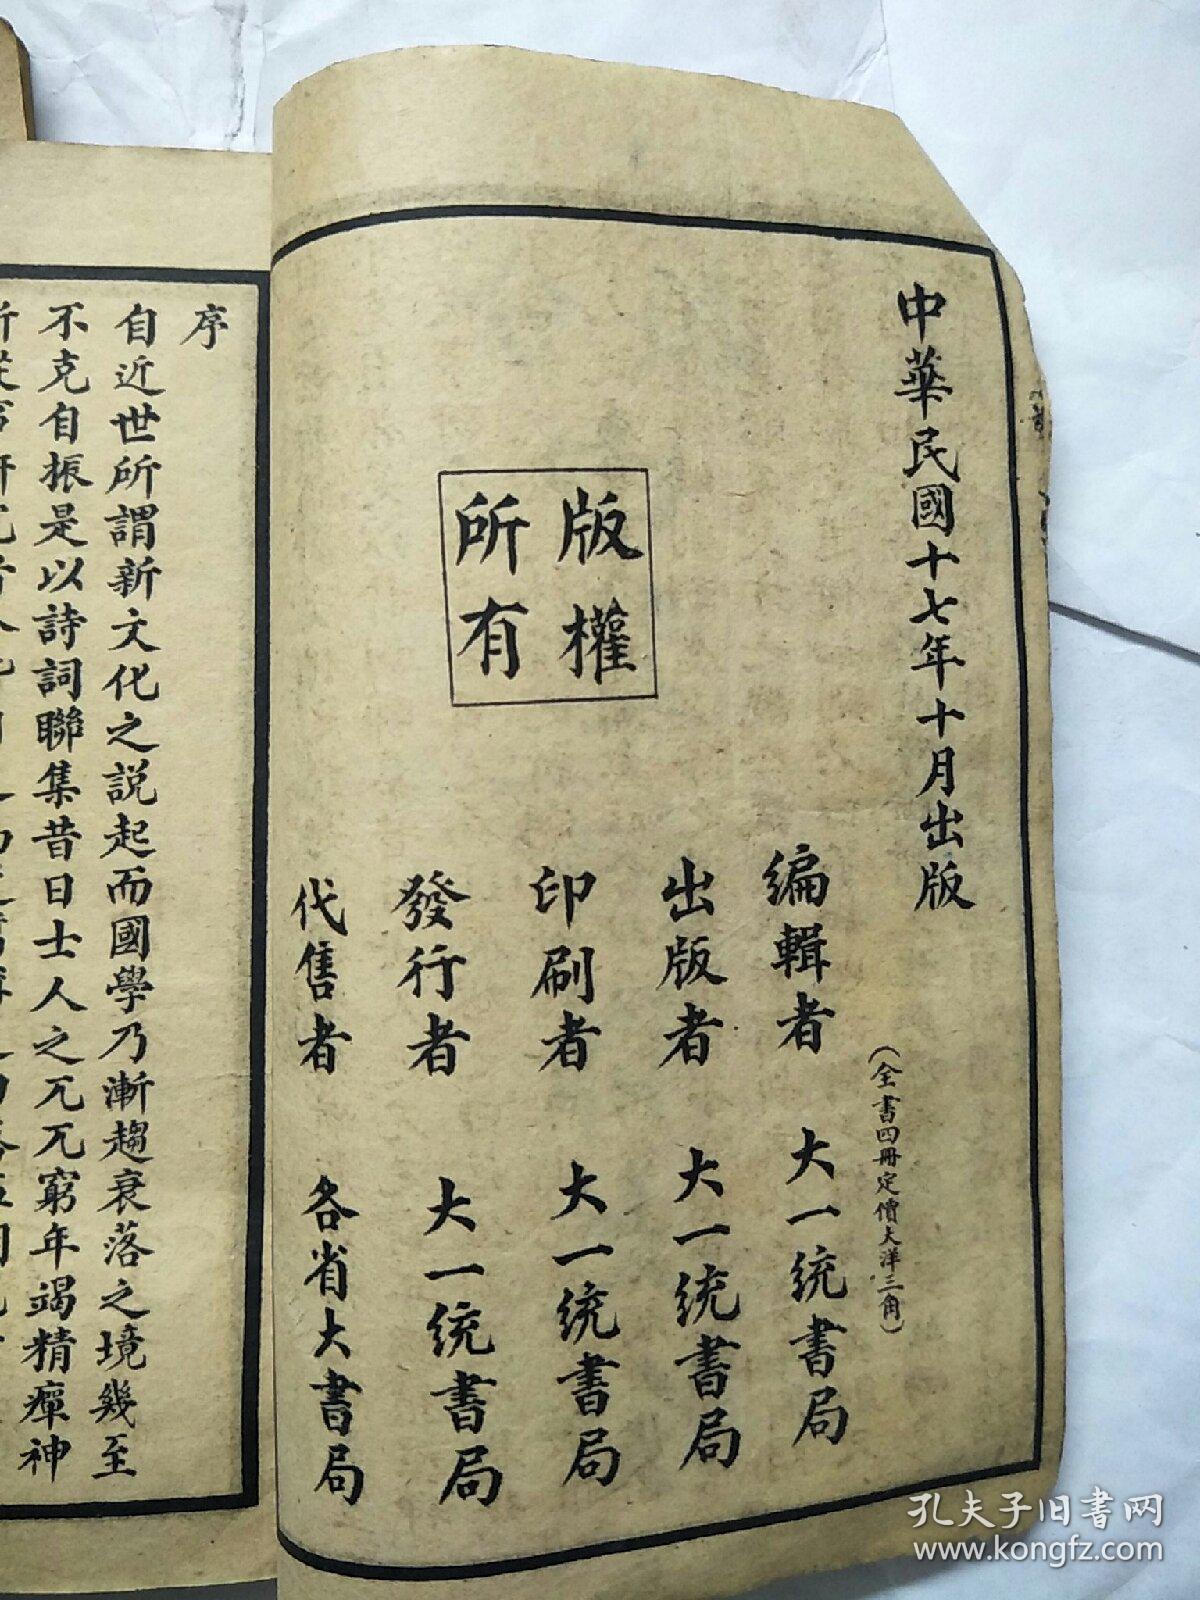 中華民國十七年十月出版
（全書四冊定價大洋三角）
版權
所有
編輯者 大一統書局
出版者 大一統書局
印刷者 大一統書局
發行者 大一統書局
代售者 各省大書局
序
自近世所謂新文化之説起而國學乃漸趨衰落之境幾至
不克自振是以詩詞聯集昔日士人之兀兀窮年竭精瘴神
孔夫子旧书网
www.kongfz.com